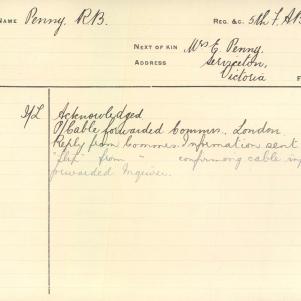 NAME Penny R.B. REG. &C. 5th F. AB
NEXT OF KIN Mrs E. Penny.
ADDRESS Serviceton,
Victoria
F
Acknowledged
O/Cable forwarded Commrs. London.
Reply from Commrs. Information sent
"flix" from " confirmong cable
forwarded Inquirer.